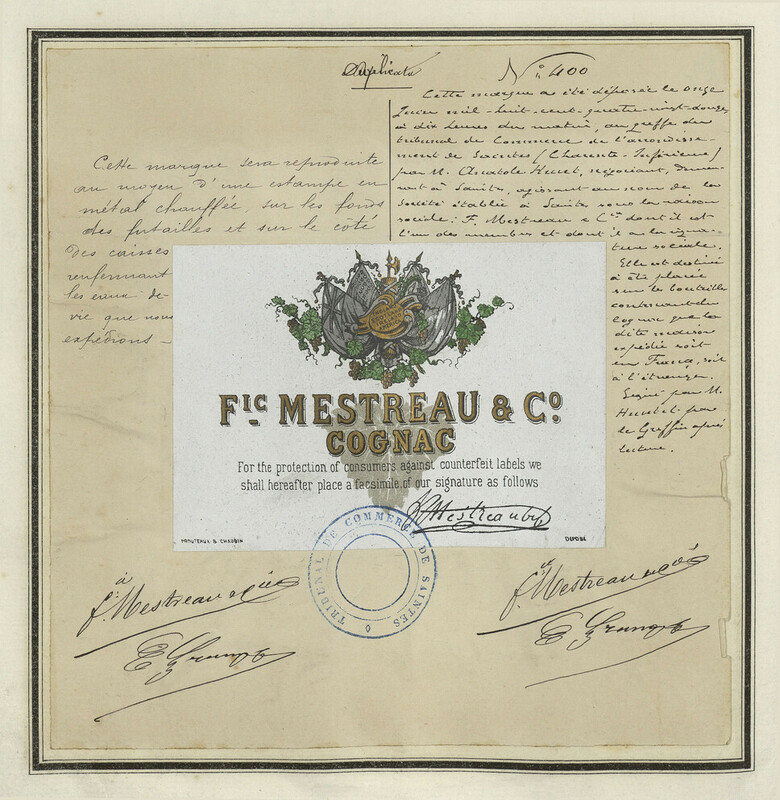 Duplicata
N° 400
Cette marque sera reproduite
au moyen d'une estampe en
métal chauffée, sur les fonds
des futailles et sur le côté
des caisses
renfermant
les eaux de
vie que nous
expédions
Cette marque a été déposée le onze
Juin mil-huit-cent-quatre-vingt-douze
à dix heures du matin, au greffe du
tribunal de Commerce de l'arrondisse-
ment de Saintes (Charente-Inférieure)
par M. Anatole négociant, demeu-
rant à Saintes, agissant au nom de la
Société établie à Saintes sous la raison
sociale: F. Mestreau & Cie dont il est
l'un des membres et dont il a la signa-
ture sociale.
Elle est destinée
à être placée
sur les bouteilles
contenant du
Cognac que la
dite maison
expédie soit
en France, soit
à l'étranger.
Signé par M.
par
le Greffier après
lecture.
FIC MESTREAU & CO.
COGNAC
For the protection of consumers against counterfeit labels we
shall hereafter place a facsimile of our signature as follows
F. Mestreau & Co
PROUTEAUX & CHAUBIN
DEPOSÉ
TRIBUNAL DE COMMERCE DE SAINTES
F. Mestreau & Cie
F. Mestreau & Cie